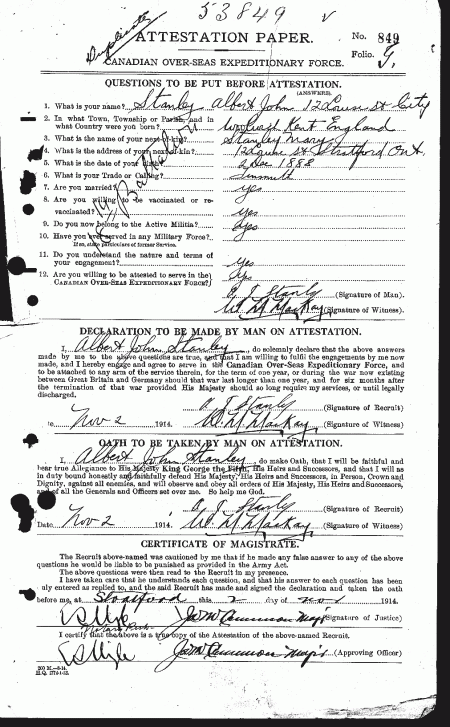 Duplicate
53849
ATTESTATION PAPER.
No. 849
Folio.
CANADIAN OVER-SEAS EXPEDITIONARY FORCE.
QUESTIONS TO BE PUT BEFORE ATTESTATION.
(ANSWERS).
1. What is your name? Stanley Albert John 12 St City
2. In what Town, Township or Parish, and in what Country were you born? Woolwich Kent England
3. What is the name of your next-of-kin? Stanley Mary
4. What is the address of your next-of-kin? 12 St Stratford Ont.
5. What is the date of your birth? 2 Dec 1888
6. What is your Trade or Calling? Tinsmith
7. Are you married? yes
8. Are you willing to be vaccinated or re-vaccinated? yes
9. Do you now belong to the Active Militia? yes
10. Have you ever served in any Military Force?
If so, state particulars of former Service.
11. Do you understand the nature and terms of your engagement? yes
12. Are you willing to be attested to serve in the CANADIAN OVER-SEAS EXPEDITIONARY FORCE? yes
A J Stanly (Signature of Man).
W. M. MacKay (Signature of Witness).
DECLARATION TO BE MADE BY MAN ON ATTESTATION.
I, Albert John Stanley, do solemnly declare that the above answers
made by me to the above questions are true, and that I am willing to fulfil the engagements by me now
made, and I hereby engage and agree to serve in the Canadian Over-Seas Expeditionary Force, and
to be attached to any arm of the service therein, for the term of one year, or during the war now existing
between Great Britain and Germany should that war last longer than one year, and for six months after
the termination of that war provided His Majesty should so long require my services, or until legally
discharged.
A J Stanly (Signature of Recruit)
Nov 2 1914. W. M. MacKay (Signature of Witness)
OATH TO BE TAKEN BY MAN ON ATTESTATION.
I, Albert John Stanley, do make Oath, that I will be faithful and
bear true Allegiance to His Majesty King George the Fifth, His Heirs and Successors, and that I will as
in duty bound honestly and faithfully defend His Majesty, His Heirs and Successors, in Person, Crown and
Dignity, against all enemies, and will observe and obey all orders of His Majesty, His Heirs and Successors,
and of all the Generals and Officers set over me. So help me God.
A J Stanly (Signature of Recruit)
Date Nov 2 1914. W. M. MacKay (Signature of Witness)
CERTIFICATE OF MAGISTRATE.
The Recruit above-named was cautioned by me that if he made any false answer to any of the above
questions he would be liable to be punished as provided in the Army Act.
The above questions were then read to the Recruit in my presence.
I have taken care that he understands each question, and that his answer to each question has been
duly entered as replied to, and the said Recruit has made and signed the declaration and taken the oath
before me, at Stratford this 2 day of Nov 1914.
(Signature of Justice)
I certify that the above is a true copy of the Attestation of the above-named Recruit.
(Approving Officer)
200 M.—8-14.
H.Q. 1772-1-13.